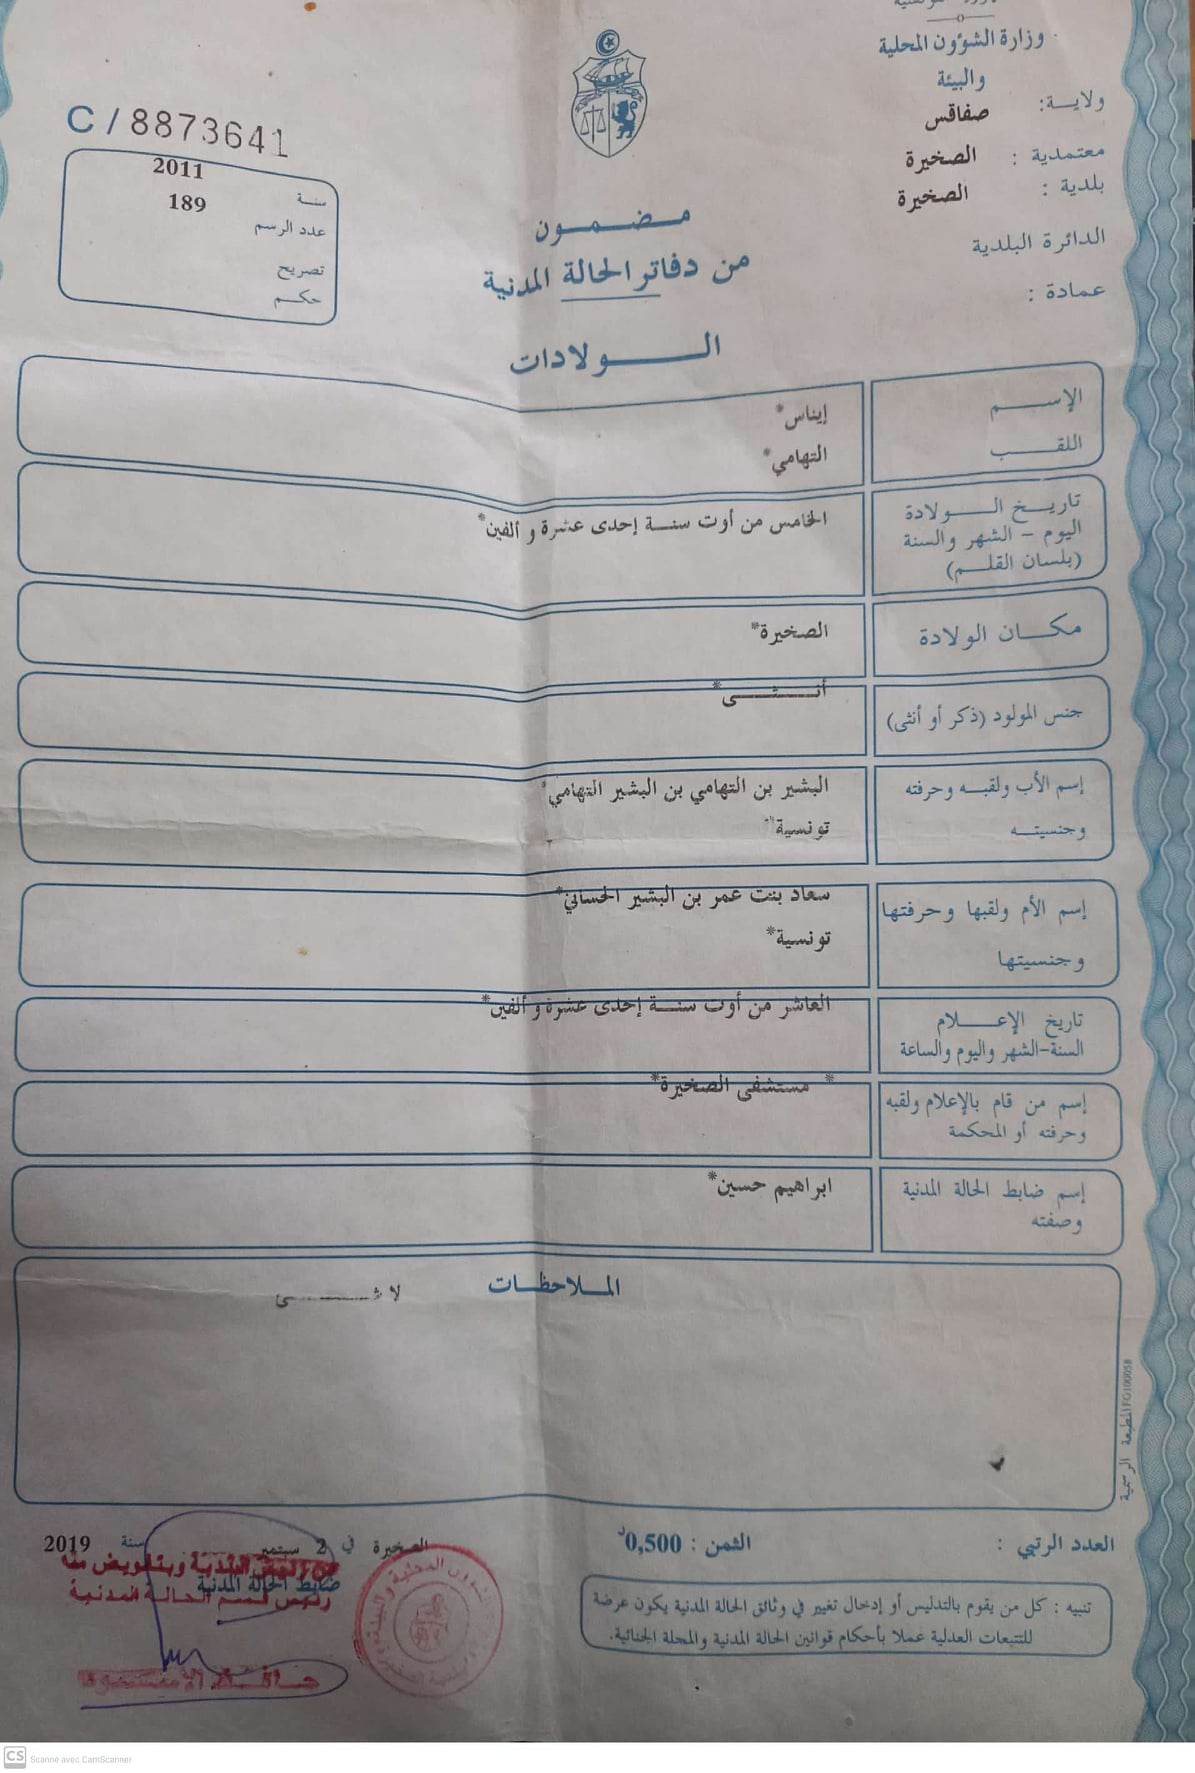 وزارة الشؤون المحلية
والبيئة
ولاية: صفاقس
معتمدية : الصخيرة
بلدية : الصخيرة
الدائرة البلدية
عمادة :
C / 8873641
سنة 2011
عدد الرسم 189
تصريح
حكم
مضمون
من دفاتر الحالة المدنية
الولادات
الإسم إيناس*
اللقب التهامي*
تاريخ الولادة
اليوم – الشهر والسنة
(بلسان القلم)
الخامس من أوت سنة إحدى عشرة و ألفين*
مكان الولادة الصخيرة*
جنس المولود (ذكر أو أنثى) أنثى*
إسم الأب ولقبه وحرفته
وجنسيته
البشير بن التهامي بن البشير التهامي*
تونسية*
إسم الأم ولقبها وحرفتها
وجنسيتها
سعاد بنت عمر بن البشير الحساني*
تونسية*
تاريخ الإعلام
السنة-الشهر واليوم والساعة
العاشر من أوت سنة إحدى عشرة و ألفين*
إسم من قام بالإعلام ولقبه
وحرفته أو المحكمة
* مستشفى الصخيرة*
إسم ضابط الحالة المدنية
وصفته
ابراهيم حسين*
الملاحظات
لا شى
المطبعة الرسمية FG100058
العدد الرتبي :
الثمن : 0,500د
الصخيرة في 2 سبتمبر سنة 2019
ضابط الحالة المدنية
رئيس قسم الحالة المدنية
تنبيه : كل من يقوم بالتدليس أو إدخال تغيير في وثائق الحالة المدنية يكون عرضة
للتتبعات العدلية عملا بأحكام قوانين الحالة المدنية والمجلة الجنائية.
CS Scanné avec CamScanner